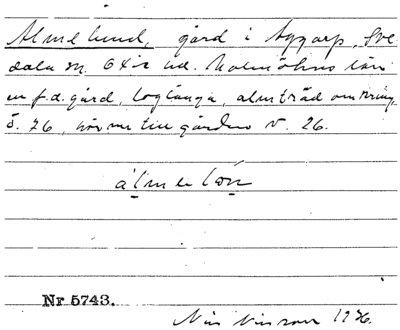 Almelund, gård i Aggarp, Sve
dala sn. Oxie hd. Malmöhus län
en f.d. gård, loglänga, almträd omkring,
ö. 26, närme till gården v. 26.
álmelón
Nr 5743.
Nils Nilsson 1936.